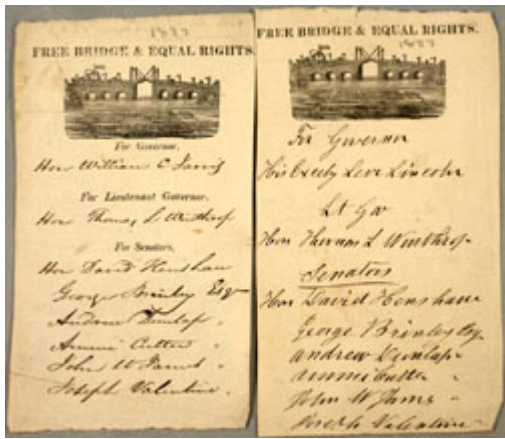 1827
FREE BRIDGE & EQUAL RIGHTS.
For Governor,
Hon William C Jarvis
For Lieutenant Governor,
Hon Thomas L Winthrop
For Senators,
Hon David Henshaw
George Brinley Esq
Andrew Dunlap "
Ammi Cutter "
John W James "
Joseph Valentine "
FREE BRIDGE & EQUAL RIGHTS.
1827
For Governor
His Excely Levi Lincoln
Lt Gov
Hon Thomas L Winthrop
Senators
Hon David Henshaw
George Brinley Esq
Andrew Dunlap "
Ammi Cutter "
John W James "
Joseph Valentine "